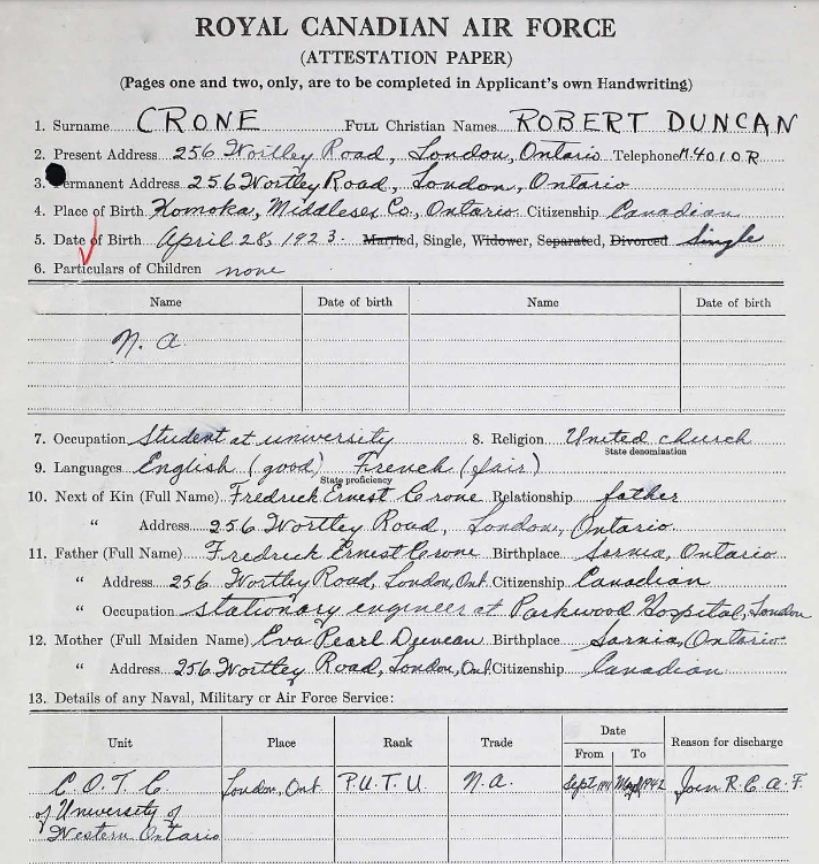 ROYAL CANADIAN AIR FORCE
(ATTESTATION PAPER)
(Pages one and two, only, are to be completed in Applicant's own Handwriting)
1. Surname CRONE FULL Christian Names ROBERT DUNCAN
2. Present Address 256 Wortley Road, London, Ontario Telephone M.4010R
3. Permanent Address 256 Wortley Road, London, Ontario
4. Place of Birth Komoka, Middlesex Co., Ontario Citizenship Canadian
5. Date of Birth April 28, 1923. Married, Single, Widower, Separated, Divorced Single
6. Particulars of Children none
Name Date of birth Name Date of birth
N. a.
7. Occupation Student at university 8. Religion United church
State denomination
9. Languages English (good) French (fair)
State proficiency
10. Next of Kin (Full Name) Fredrick Ernest Crone Relationship father
" Address 256 Wortley Road, London, Ontario.
11. Father (Full Name) Fredrick Ernest Crone Birthplace Sarnia, Ontario
" Address 256 Wortley Road, London, Ont. Citizenship Canadian
" Occupation stationary engineer at Parkwood Hospital, London
12. Mother (Full Maiden Name) Eva Pearl Duncan Birthplace Sarnia, Ontario
" Address 256 Wortley Road, London, Ont. Citizenship Canadian
13. Details of any Naval, Military or Air Force Service:
Unit Place Rank Trade Date Reason for discharge
From To
C.O.T.C. London, Ont. P.U.T.U. N.A. Sept 1941 May 1942 Join R.C.A.F.
of University of
Western Ontario